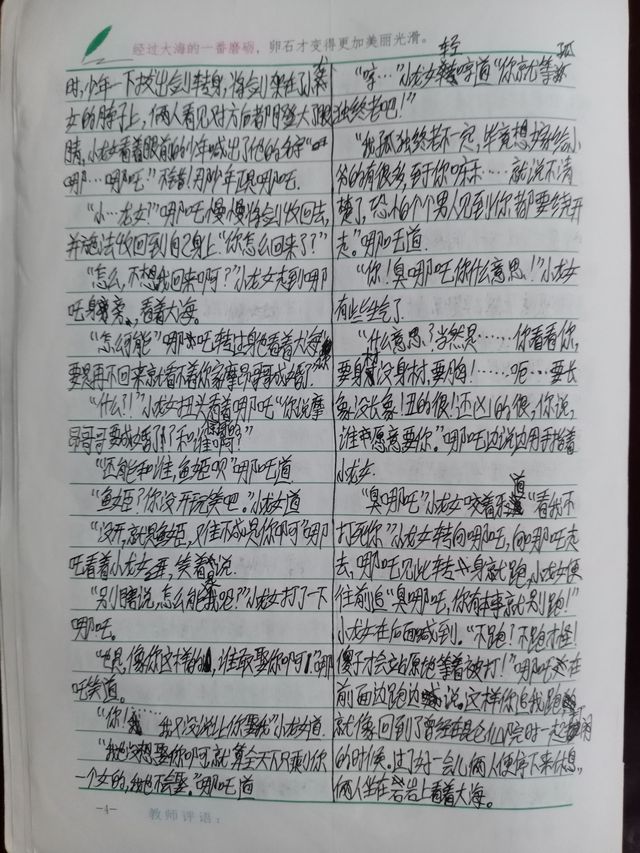 经过大海的一番磨砺，卵石才变得更加美丽光滑。
时，少年一下拔出剑转身，将剑架在了小龙
女的脖子上，俩人看见对方后都瞪大了眼
睛，小龙女看着眼前的少年喊出了他的名字“
哪…哪吒”不错！那少年正是哪吒。
“小…龙女！”哪吒慢慢将剑收回去，
并施法收回到自己身上“你怎么回来了？”
“怎么，不想我回来啊？”小龙女走到哪
吒身旁，看着大海。
“怎么可能”哪吒转过身也看着大海“你
要是再不回来就看不着你家摩昂哥哥成婚了”
“什么？！”小龙女扭头看着哪吒“你说摩
昂哥哥要成婚了？和谁啊？”
“还能和谁，鱼姬呗”哪吒道
“鱼姬？你没开玩笑吧。”小龙女道
“没开，就是鱼姬，又谁不成是你啊”哪
吒看着小龙女，笑着说.
“别瞎说，怎么能是我呢？”小龙女打了一下
哪吒。
“也是，像你这样的，谁敢娶你啊！”哪
吒笑道。
“你！…… 我又没说让你娶我”小龙女道
“我也没想要你啊，就算全天下只剩小你
一个女的，我也不会娶。”哪吒道
“哼…”小龙女轻哼道“你就等孤
独终老吧！”
“我孤独终老不一定，毕竟想嫁给小
爷的有很多，至于你嘛…… 就说不清
楚了，恐怕个个男人见到你都要绕开
走。”哪吒道.
“你！臭哪吒你什么意思！”小龙女
有些生气了.
“什么意思？当然是…… 你看看你，
要身材没身材，要胸！…… 呃… 要长
象没长象！丑的很！还凶的很，你说，
谁愿意要你。”哪吒边说边用手指着
小龙女.
“臭哪吒”小龙女咬着牙道“看我不
打死你”小龙女转向哪吒，向哪吒走
去，哪吒见此转身就跑，小龙女便
往前追“臭哪吒，你有本事就别跑！”
小龙女在后面喊到。“不跑？不跑才怪！
傻子才会站原地等着被打！”哪吒在
前面边跑边说。这样你追我跑
就像回到了曾经在昆仑仙院时一起打闹
的时候。过了好一会儿俩人便停下来休息，
俩人坐在岩上看着大海。
-4-
教师评语：